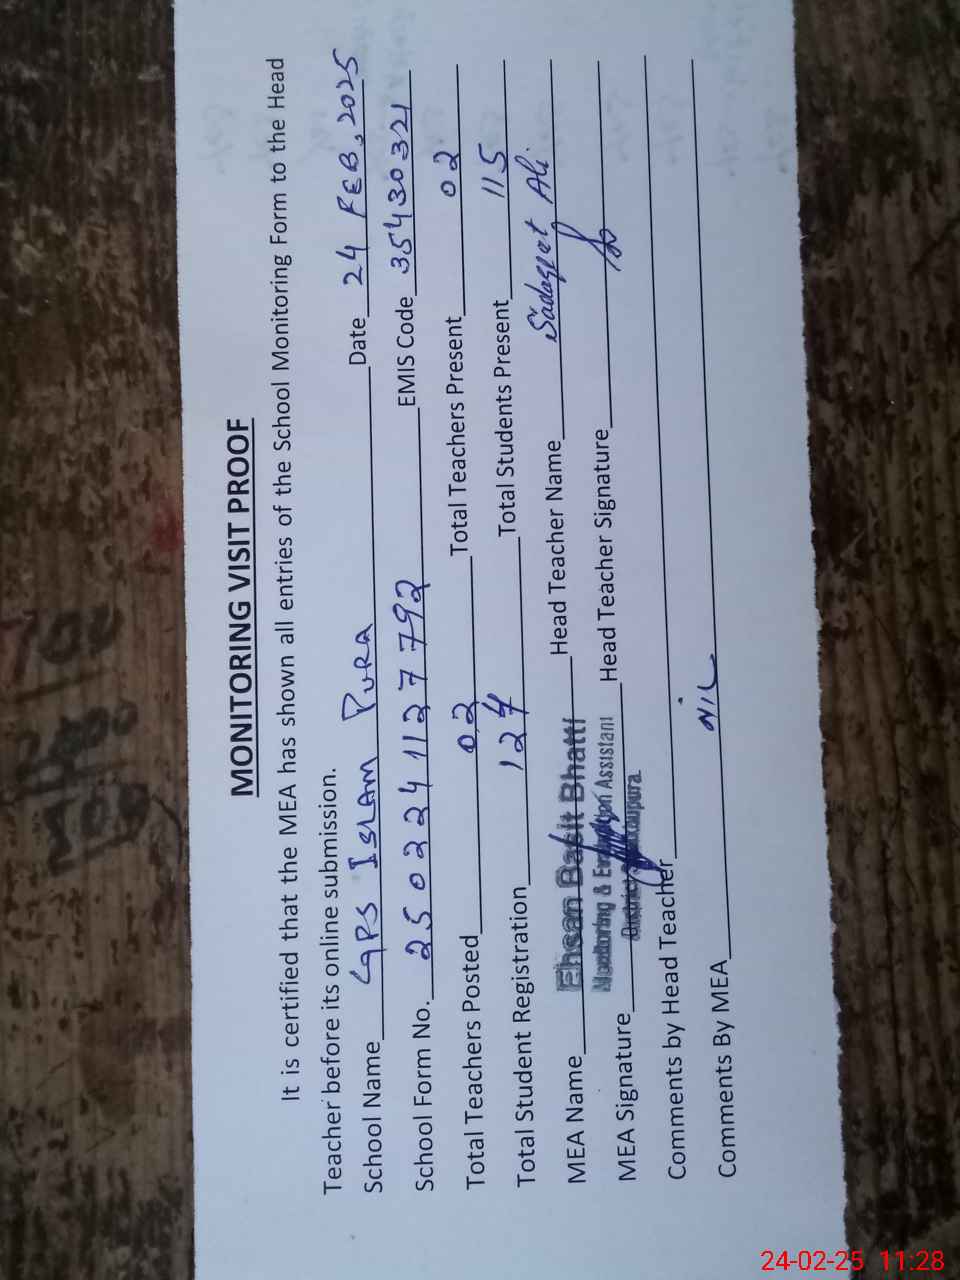 MONITORING VISIT PROOF
It is certified that the MEA has shown all entries of the School Monitoring Form to the Head
Teacher before its online submission.
School Name GPS ISLAM PURA Date 24 FEB, 2025
School Form No. 2502241127792 EMIS Code 35430321
Total Teachers Posted 02 Total Teachers Present 02
Total Student Registration 124 Total Students Present 115
MEA Name Ehsan Basit Bhatti Head Teacher Name Sadaqat Ali
MEA Signature Monitoring & Evaluation Assistant Head Teacher Signature
District Sheikhupura
Comments by Head Teacher
Comments By MEA NIL
24-02-25 11:28